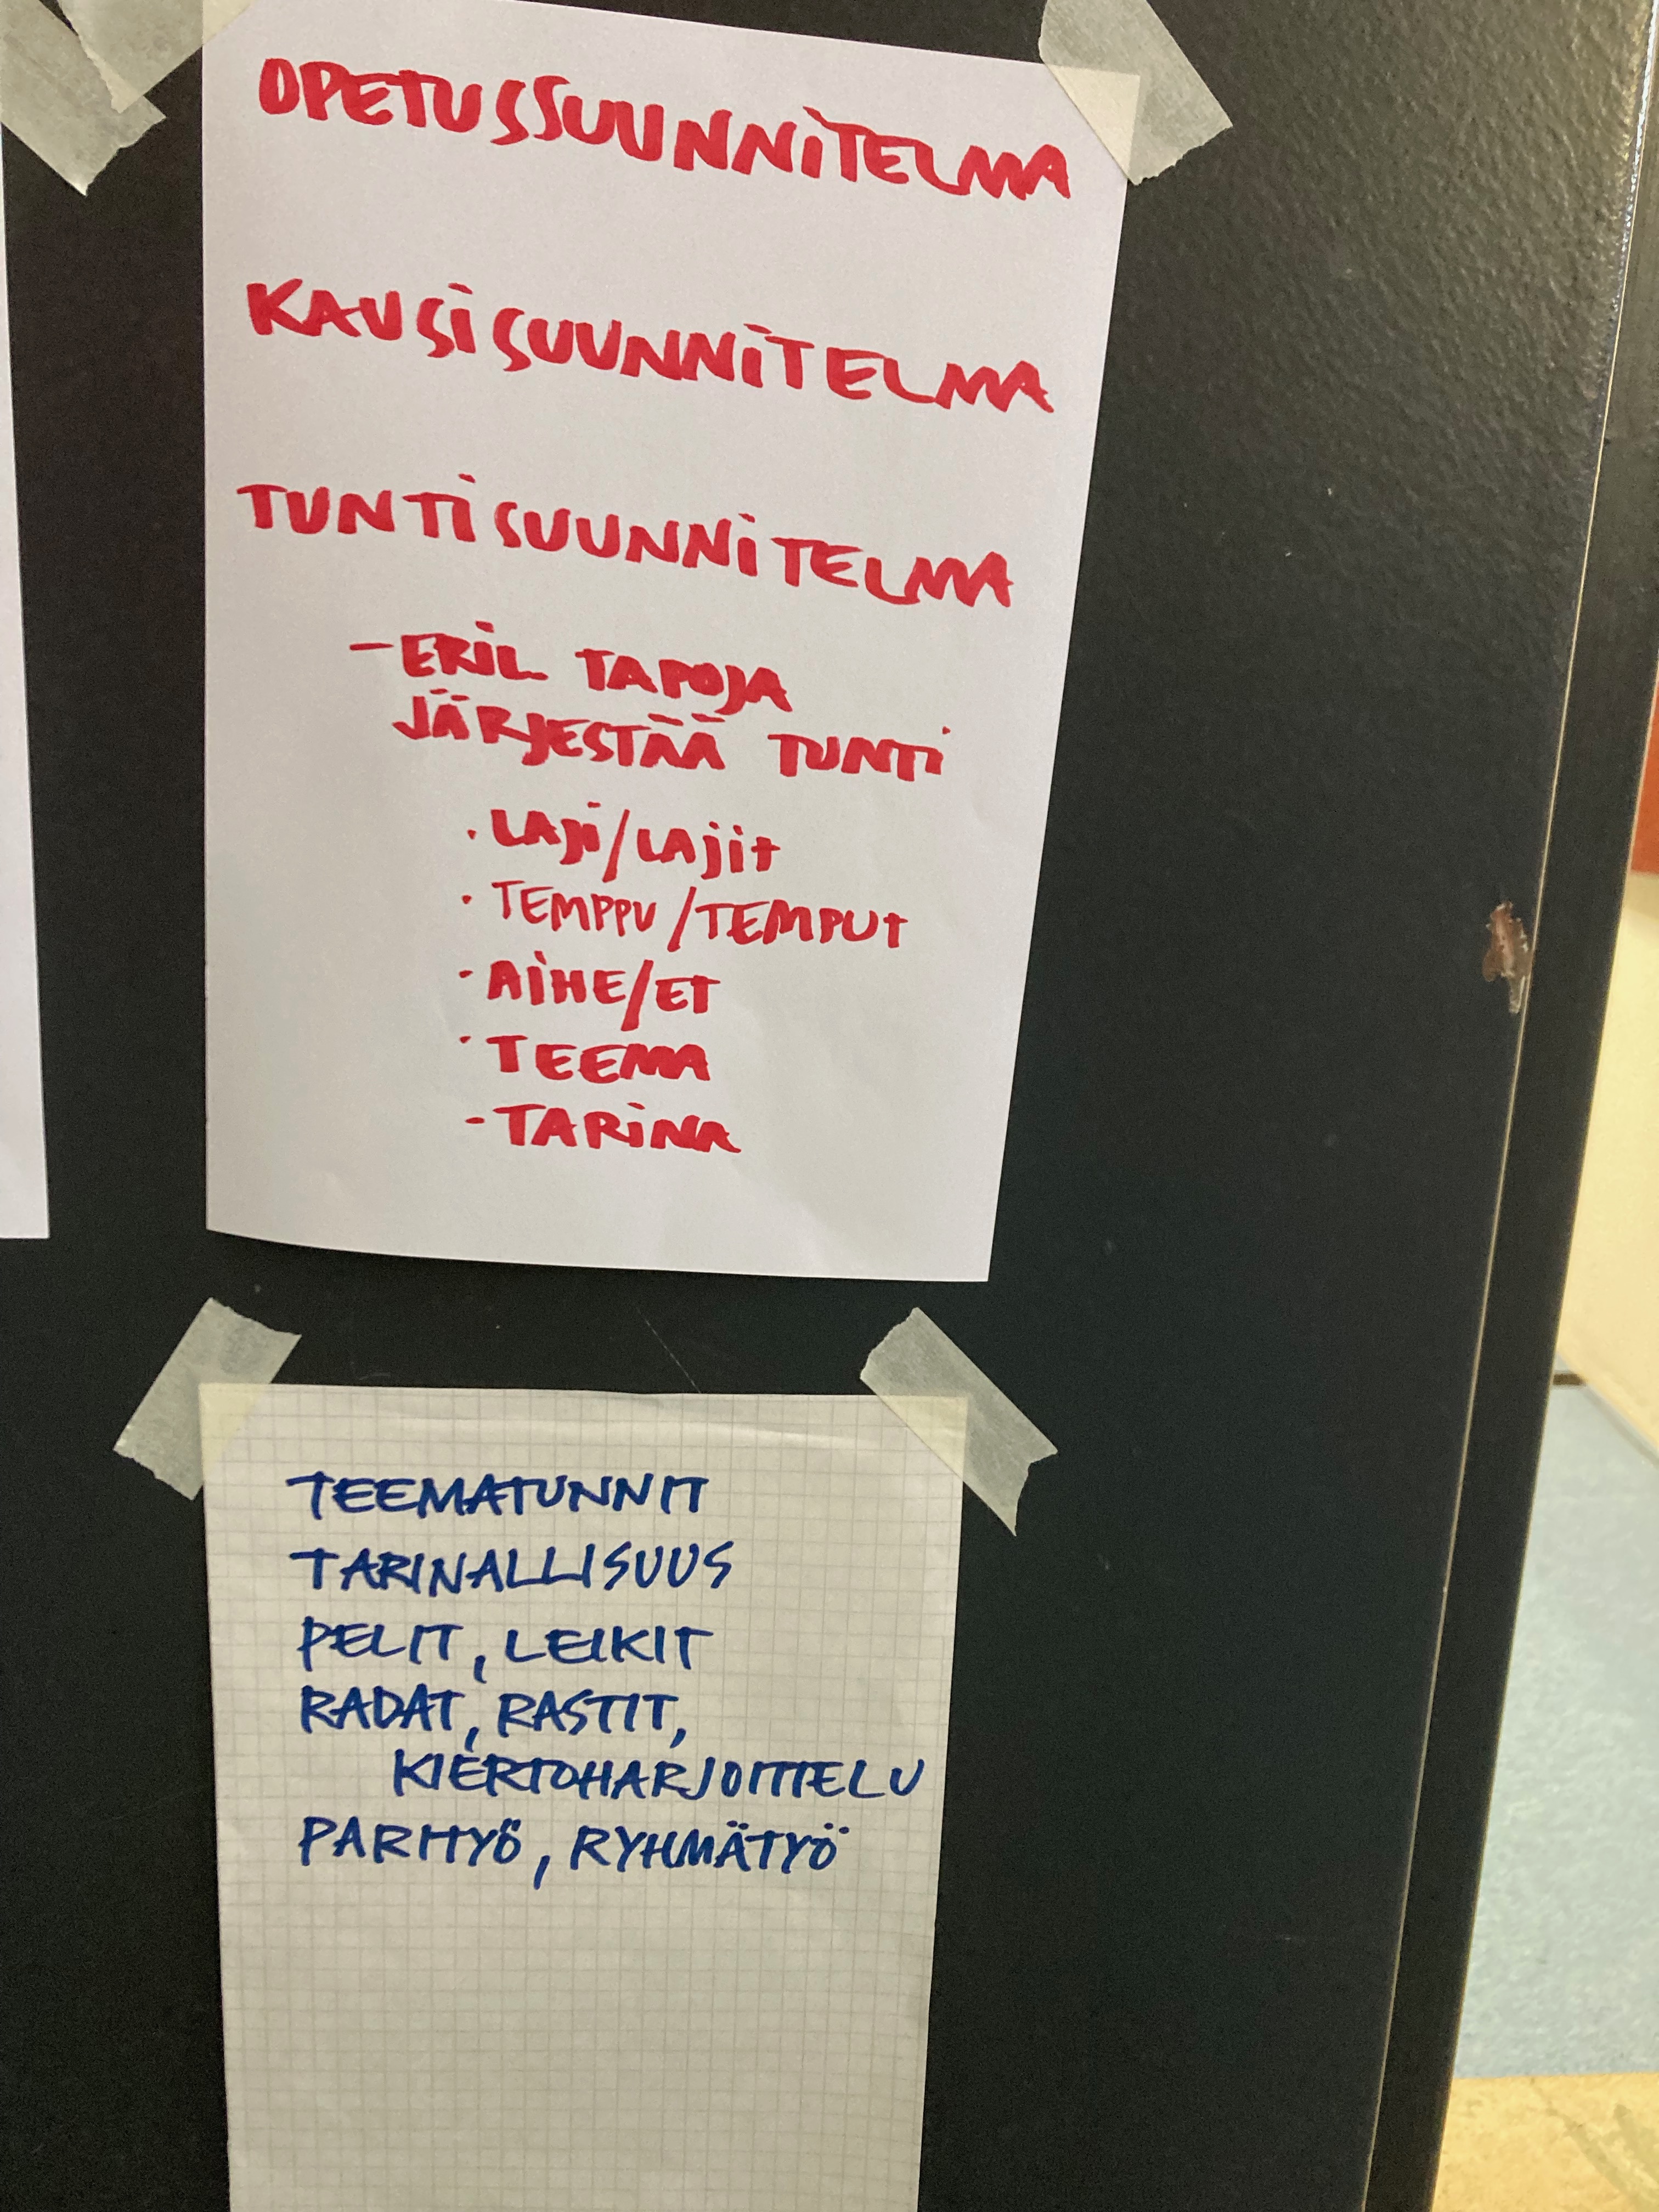 OPETUSSUUNNITELMA
KAUSISUUNNITELMA
TUNTISUUNNITELMA
- ERIL TAPOJA
JÄRJESTÄÄ TUNTI
· LAJI/LAJIT
· TEMPPU/TEMPUT
- AIHE/ET
· TEEMA
- TARINA
TEEMATUNNIT
TARINALLISUUS
PELIT, LEIKIT
RADAT, RASTIT,
KIERTOHARJOITTELU
PARITYÖ, RYHMÄTYÖ